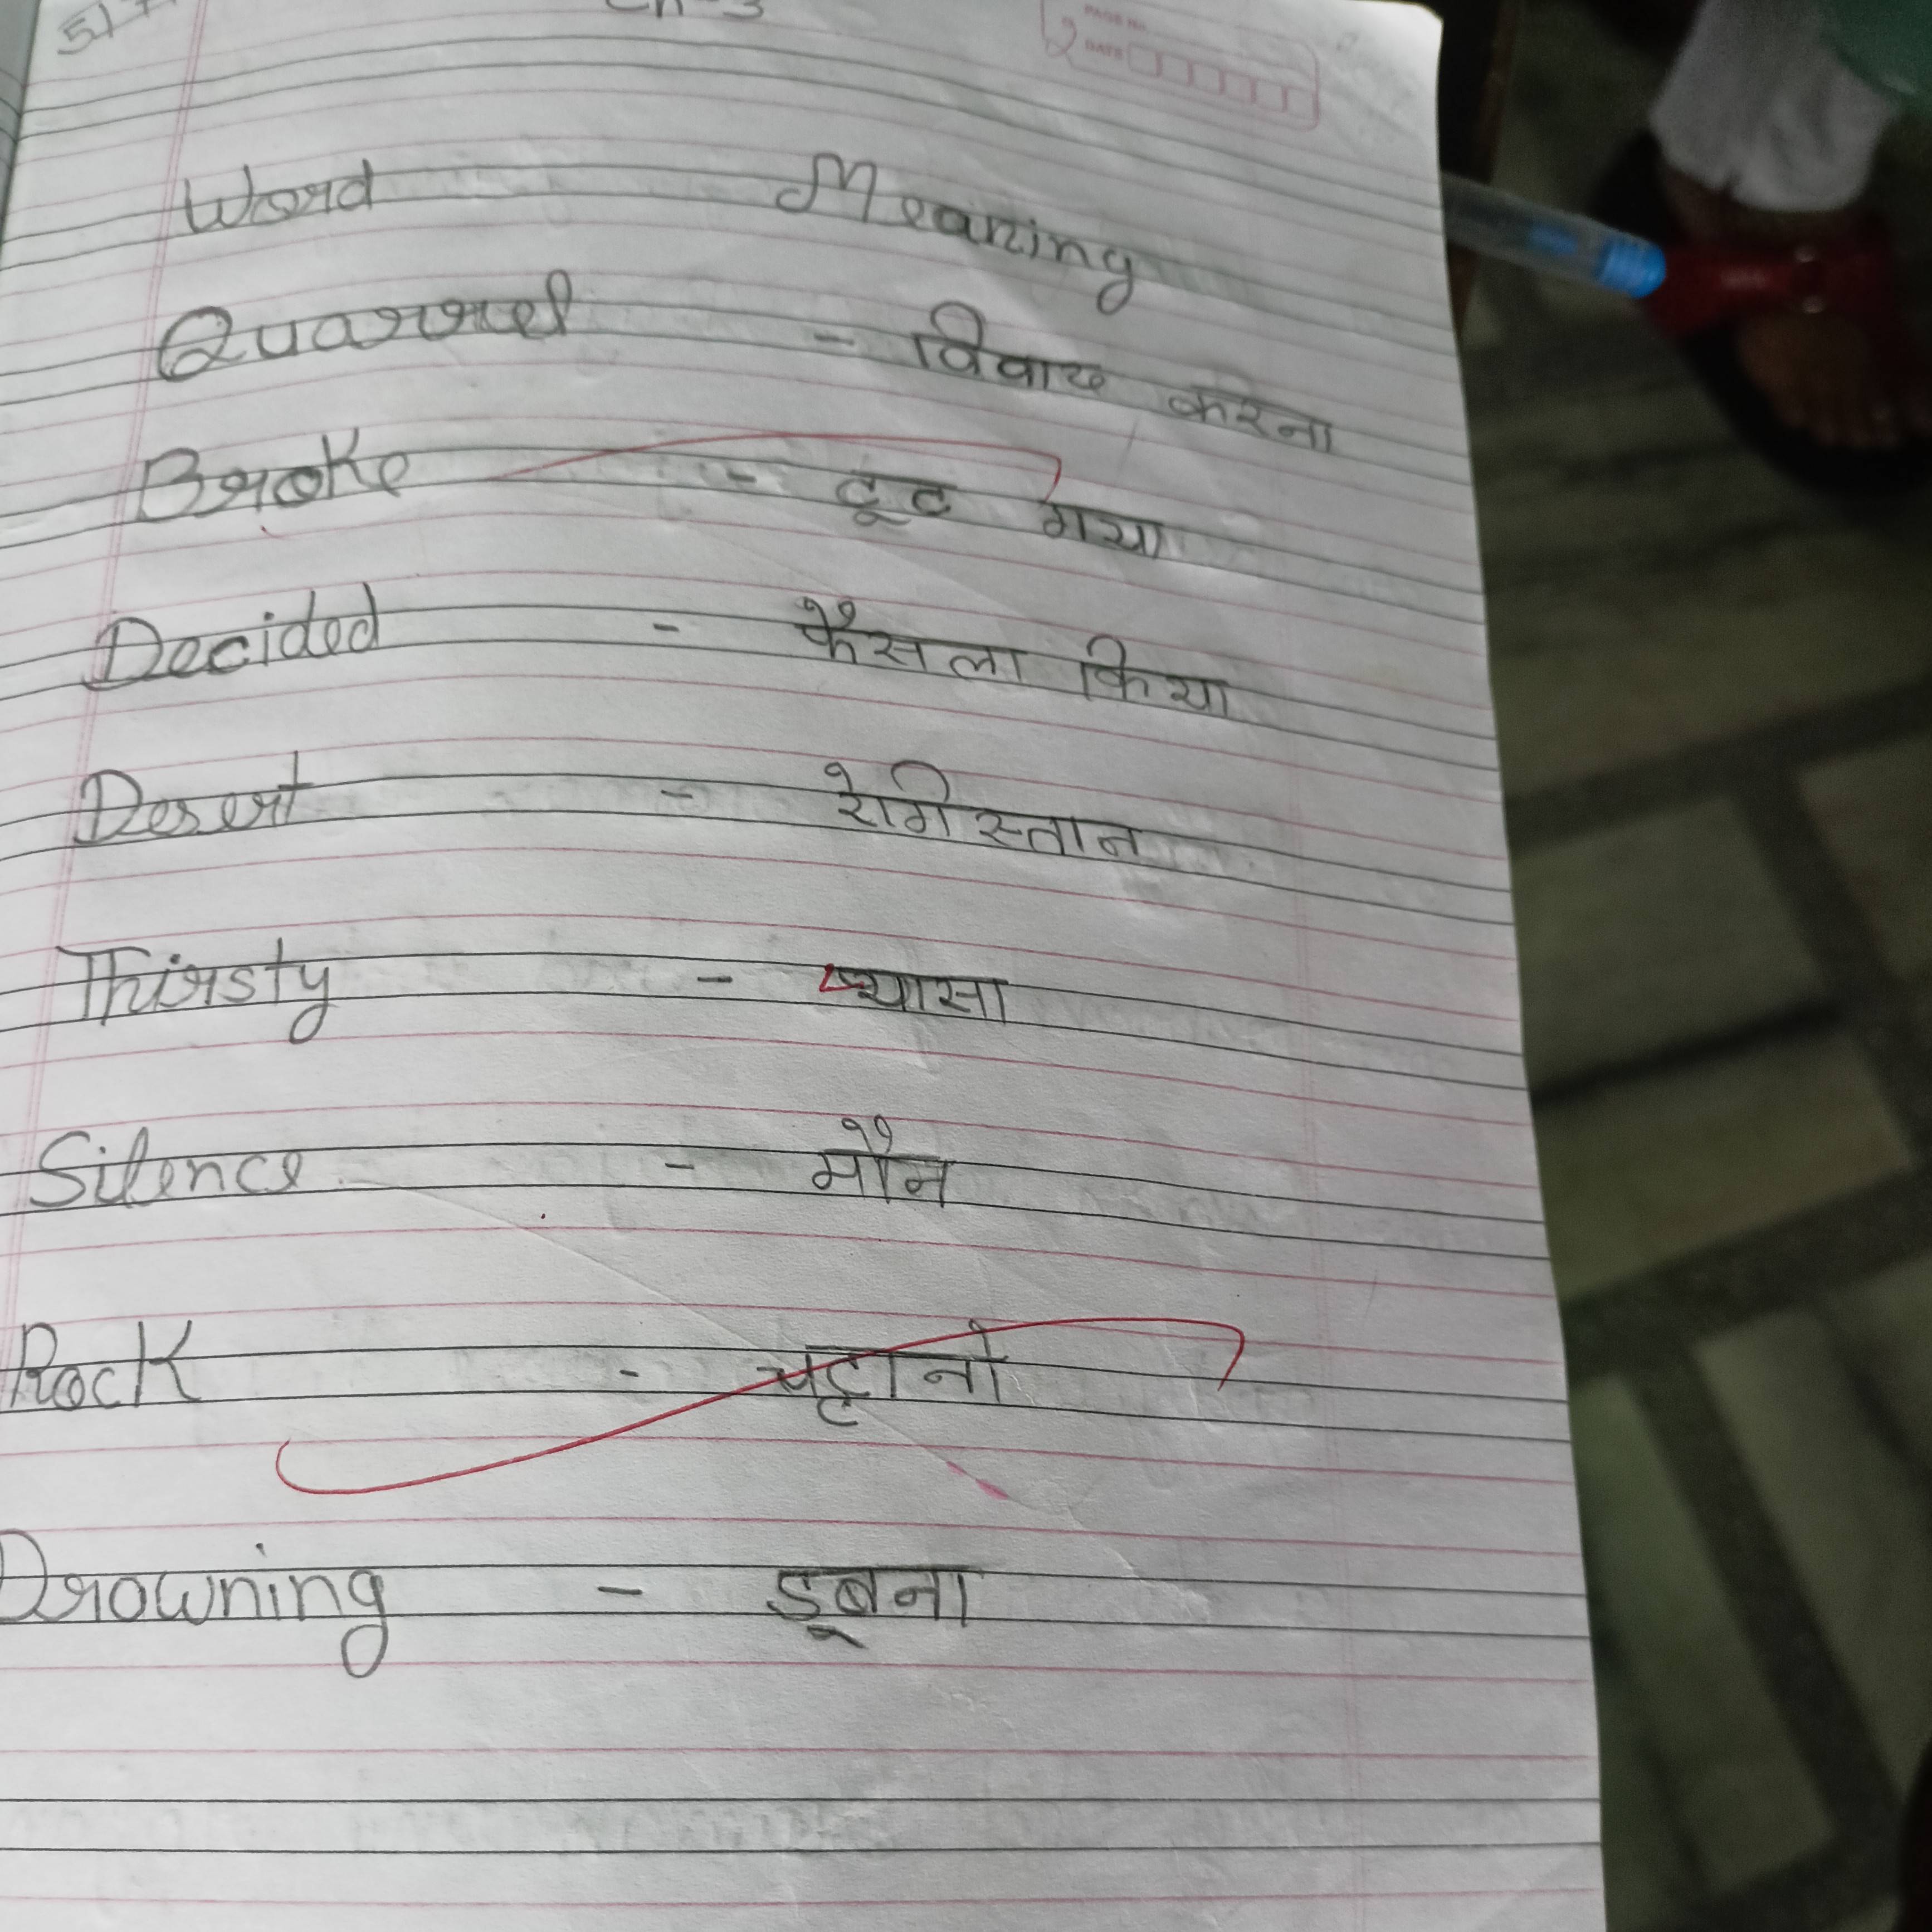 Ch-3
PAGE No.
DATE
Word Meaning
Quarrel - विवाद करना
Broke - टूट गया
Decided - फैसला किया
Desert - रेगिस्तान
Thirsty - प्यासा
Silence - मौन
Rock - चट्टानो
Drowning - डूबना